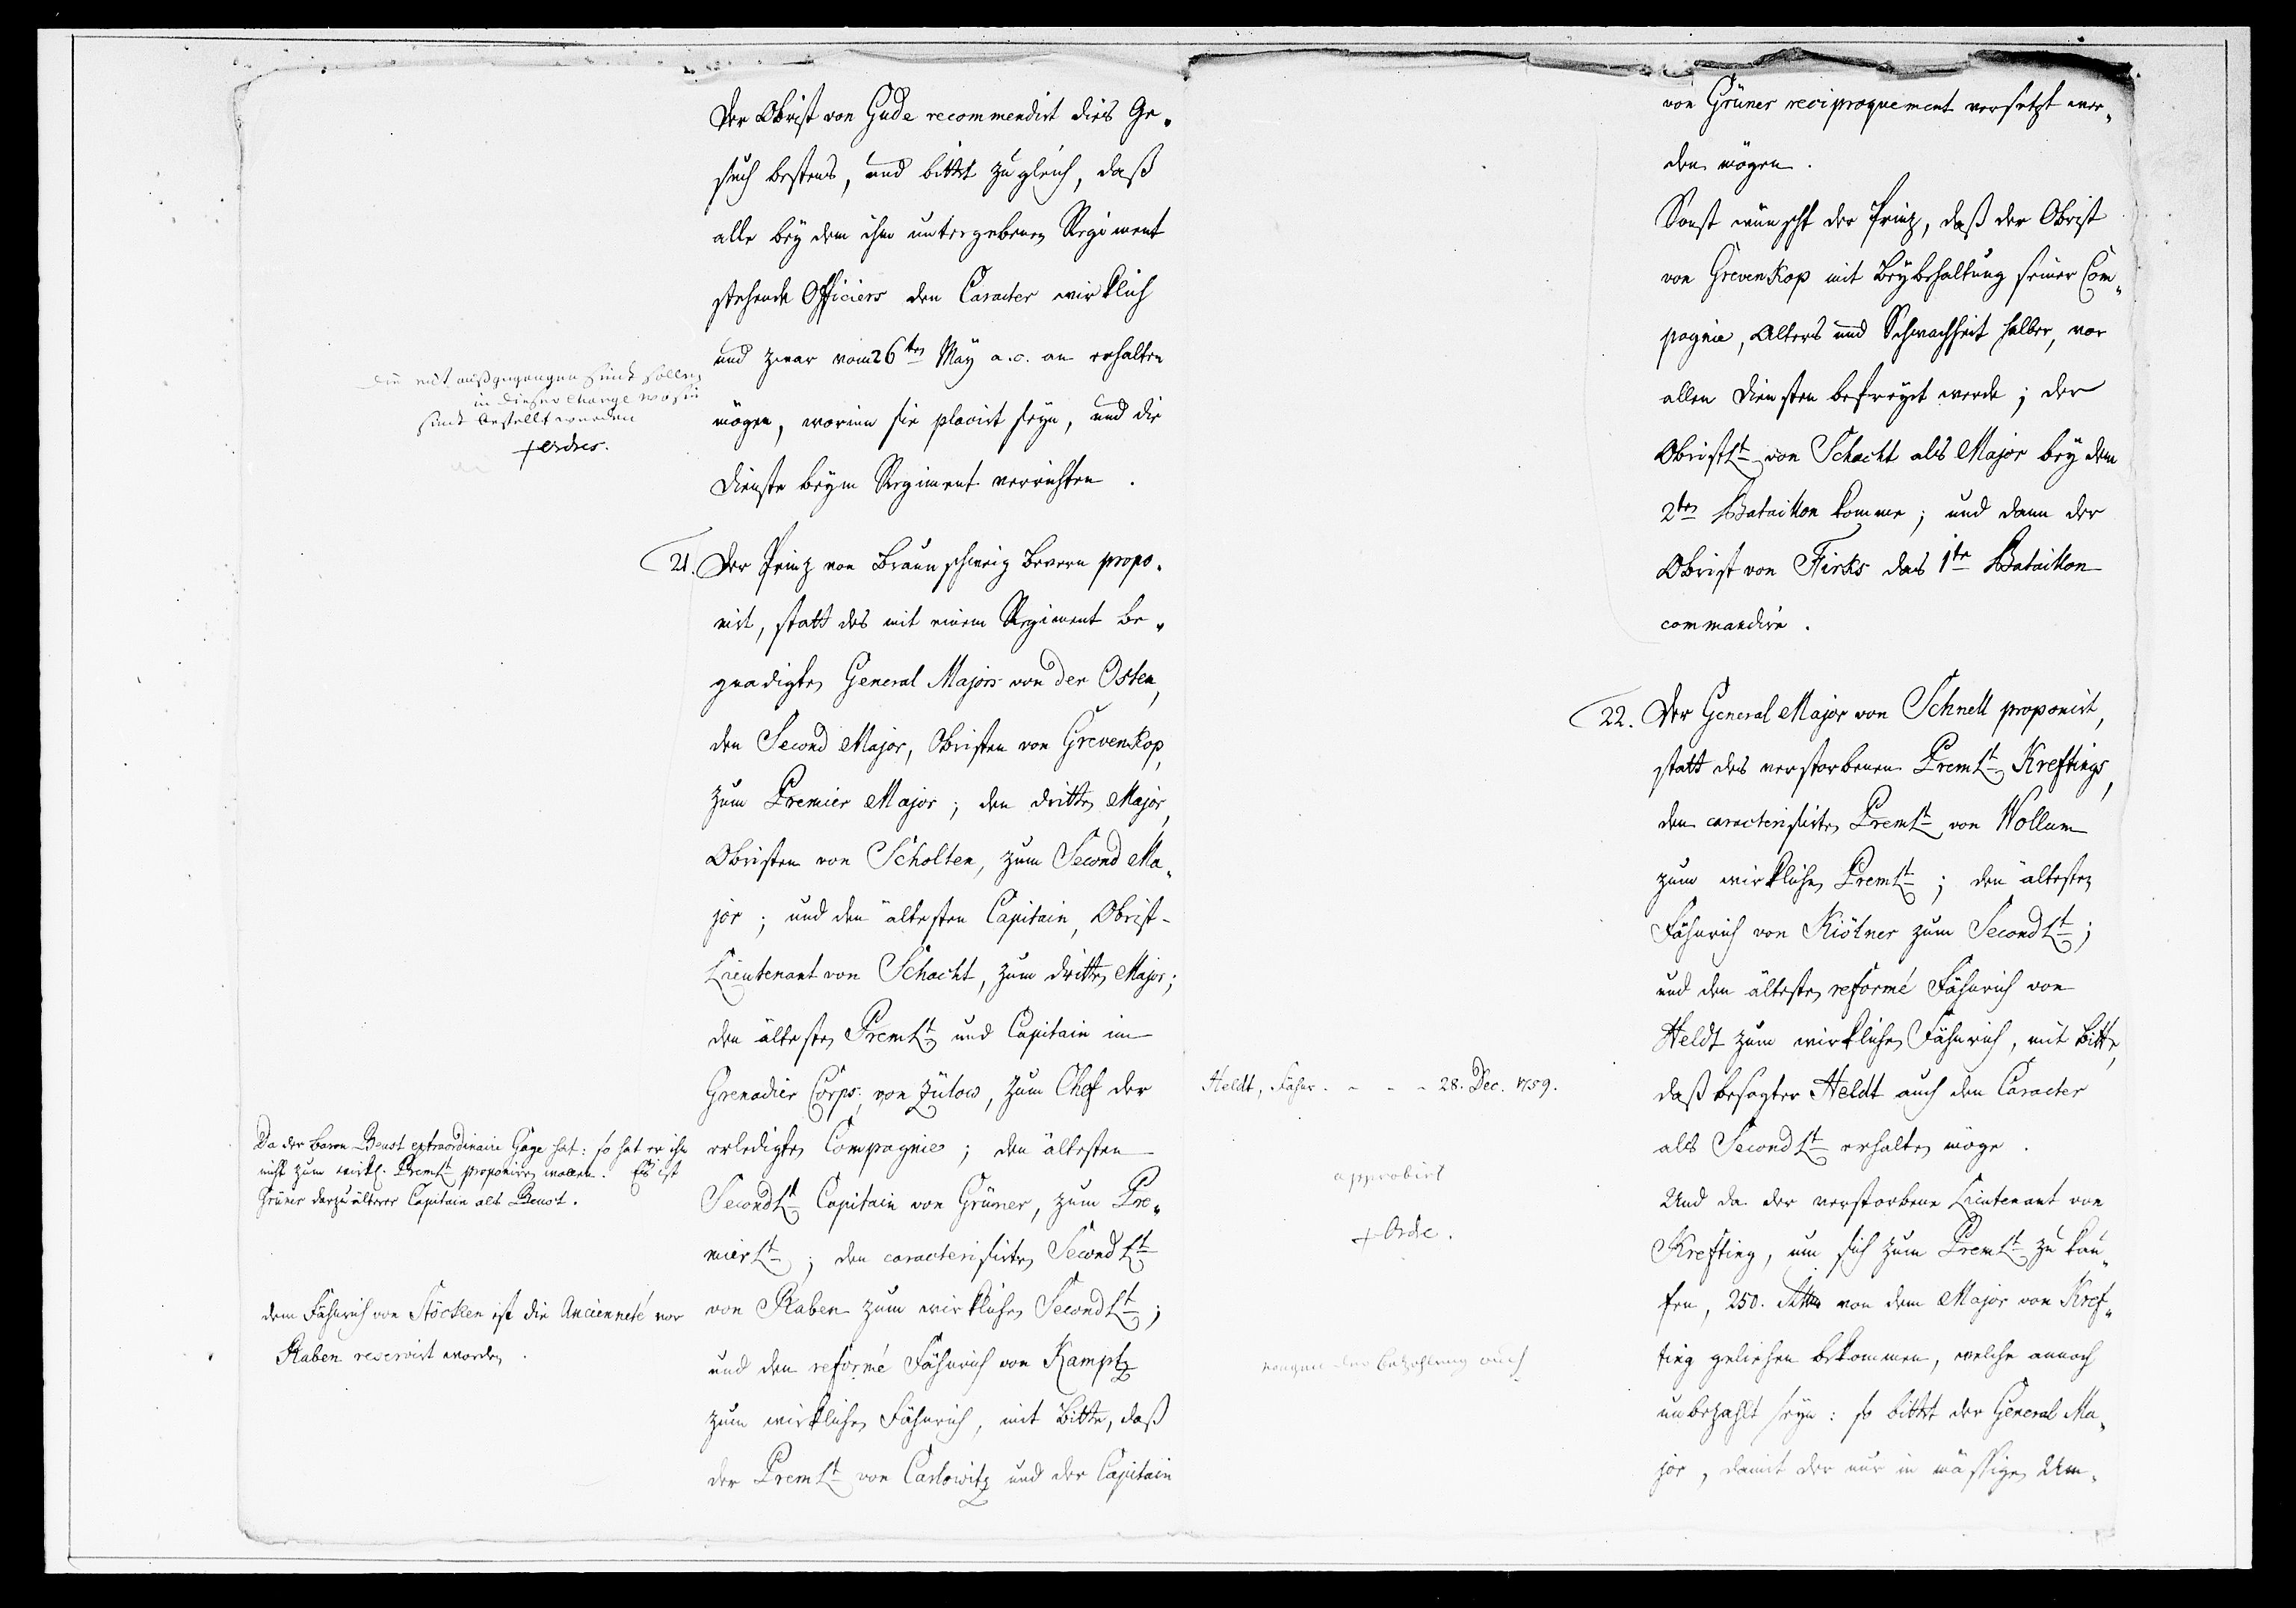 Der Obrist von Gude recommendirt dies Ge-
such bestens, und bittet zugleich, daß
alle bey dem ihm untergebenen Regiment
stehende Officiers den Caracter wirklich
und zwar vom 26ten May a.c. an erhalten
mögen, worinn sie placirt seyn, und die
Dienste beym Regiment verrichten.
die mit außgegangen sindt sollen
in dieser Charge wo sie
sindt bestellt werden
+ ordres.
21. Der Prinz von Braunschweig Bevern propo-
nirt, statt des mit einem Regiment be-
gnadigten General Majors von der Osten,
den Second Major, Obristen von Grevenkop,
zum Premier Major; den dritten Major,
Obristen von Scholten, zum Second Ma-
jor; und den ältesten Capitain, Obrist-
Lieutenant von Schacht, zum dritten Major;
den ältesten PremLt und Capitain im
Grenadier Corps, von Zülow, zum Chef der
erledigten Compagnie; den ältesten
SecondLt Capitain von Grüner, zum Pre-
mierLt; den caracterisirten SecondLt
von Raben zum wirklichen SecondLt;
und den reformé Fähnrich von Kamptz
zum wirklichen Fähnrich, mit Bitte, daß
der PremLt von Carlowitz und der Capitain
Da der Baron Beust extraordinaire Gage hat: so hat er ihn
nicht zum wirkl. PremLt proponiren wollen. Es ist
Grüner darzu älterer Capitain als Beust.
dem Fähnrich von Stöcken ist die Ancienneté vor
Raben reservirt worden.
von Grüner reciproquement versetzt wer-
den mögen.
Sonst wünscht der Prinz, daß der Obrist
von Grevenkop mit Beybehaltung seiner Com-
pagnie, Alters und Schwachheit halber, von
allen Diensten befreyet werde; der
ObristLt von Schacht als Major bey dem
2ten Bataillon komme; und dann der
Obrist von Firks das 1te Bataillon
commandire.
22. Der General Major von Schnell proponirt,
statt des verstorbenen PremLt Kreftings,
den caracterisirten PremLt von Wollum
zum wirklichen PremLt; den ältesten
Fähnrich von Kiötner zum SecondLt;
und den ältesten reformé Fähnrich von
Heldt zum wirklichen Fähnrich, mit Bitte,
daß besagter Heldt auch den Caracter
als SecondLt erhalten möge.
Und da der verstorbene Lieutenant von
Krefting, um sich zum PremLt zu kau-
fen, 250. Rthlr von dem Major von Kref-
ting geliehen bekommen, welche annoch
unbezahlt seyn: so bittet der General Ma-
jor, damit der nur in mässigen Um-
Heldt, Fähnr. - - - 28. Dec. 1759.
approbirt
+ Ordre.
wegen der bezahlung auch